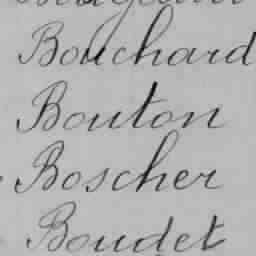 Bouchard
Bouton
Boscher
Boudet